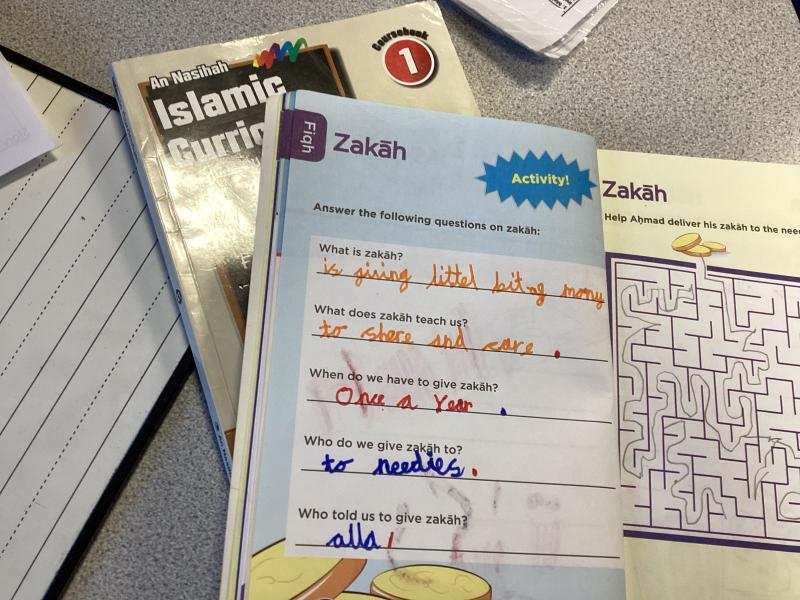 Coursebook
1
An Nasihah
Islamic
Curric
Fiqh
Zakāh
Activity!
Answer the following questions on zakāh:
What is zakāh?
is giving littel bit og mony
What does zakāh teach us?
to shere and care .
When do we have to give zakāh?
Once a Year .
Who do we give zakāh to?
to needies.
Who told us to give zakāh?
alla
Zakāh
Help Aḥmad deliver his zakāh to the need